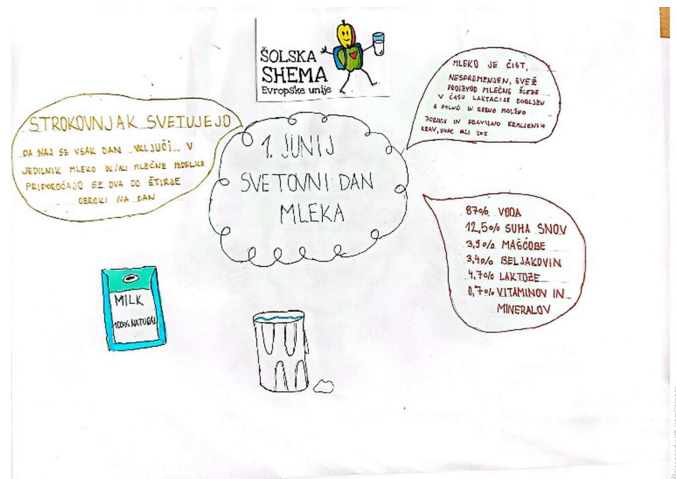 ŠOLSKA
SHEMA
Evropske unije
1. JUNIJ
SVETOVNI DAN
MLEKA
STROKOVNJAK SVETUJEJO
DA NAJ SE VSAK DAN VKLJUČI V
JEDILNIK MLEKO IN/ALI MLEČNE IZDELKE
PRIPOROČAJO SE DVA DO ŠTIRJE
OBROKI NA DAN
MLEKO JE ČIST,
NESPREMENJEN, SVEŽ
PROIZVOD MLEČNE ŽLEZE
V ČASU LAKTACIJE DOBLJEN
S POLNO IN REDNO MOLŽNO
ZDRAVIH IN PRAVILNO KRMLJENIH
KRAV, OVAC ALI KOZ
87% VODA
12,5% SUHA SNOV
3,9% MAŠČOBE
3,4% BELJAKOVIN
4,7% LAKTOZE
0,7% VITAMINOV IN
MINERALOV
MILK
100% NATURAL